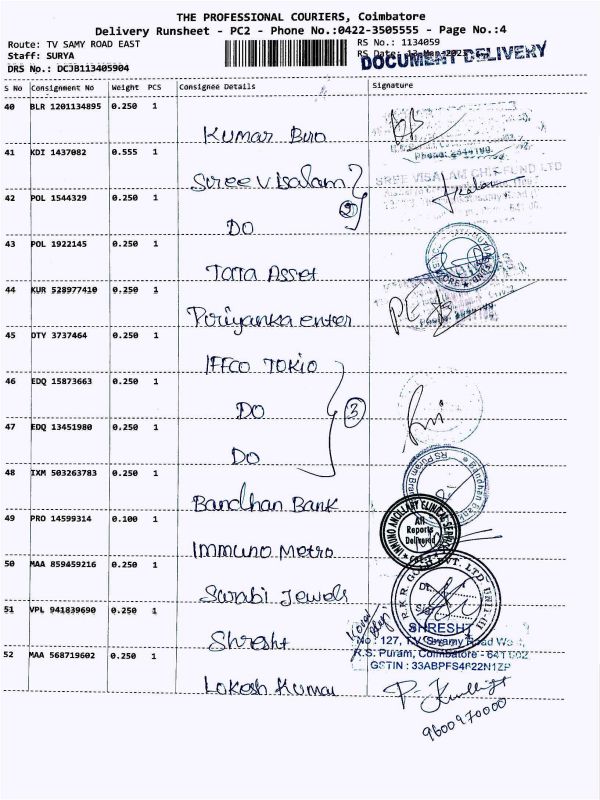 THE PROFESSIONAL COURIERS, Coimbatore
Delivery Runsheet - PC2 - Phone No.:0422-3505555 - Page No.:4
Route: TV SAMY ROAD EAST
RS No.: 1134059
Staff: SURYA
RS Date:
DOCUMENT DELIVERY
DRS No.: DCJB113405904
S No Consignment No Weight PCS Consignee Details Signature
40 BLR 1201134895 0.250 1
Kumar Bro
41 KDI 1437082 0.555 1
SREE VISALAM CHIT FUND LTD
Sree Visalam
42 POL 1544329 0.250 1
2
DO
43 POL 1922145 0.250 1
Tata Asset
44 KUR 528977410 0.250 1
Piriyanka enter
45 DTY 3737464 0.250 1
IFFCO TOKIO
46 EDQ 15873663 0.250 1
DO
3
47 EDQ 13451980 0.250 1
DO
48 IXM 503263783 0.250 1
RS Puram
Bandhan Bank
49 PRO 14599314 0.100 1
IMMUNO ANCILLARY CLINICAL
All
Reports
Delivered
Immuno Metro
50 MAA 859459216 0.250 1
R.K.R. GOLD PVT. LTD UNIT-III
Surabi Jewels
51 VPL 941839690 0.250 1
SHRESHT
No : 127, T.V. Swamy Road
R.S. Puram, Coimbatore - 641 002
GSTIN : 33ABPFS4622N1ZP
Shresht
52 MAA 568719602 0.250 1
Lokesh Kumar
9600970000